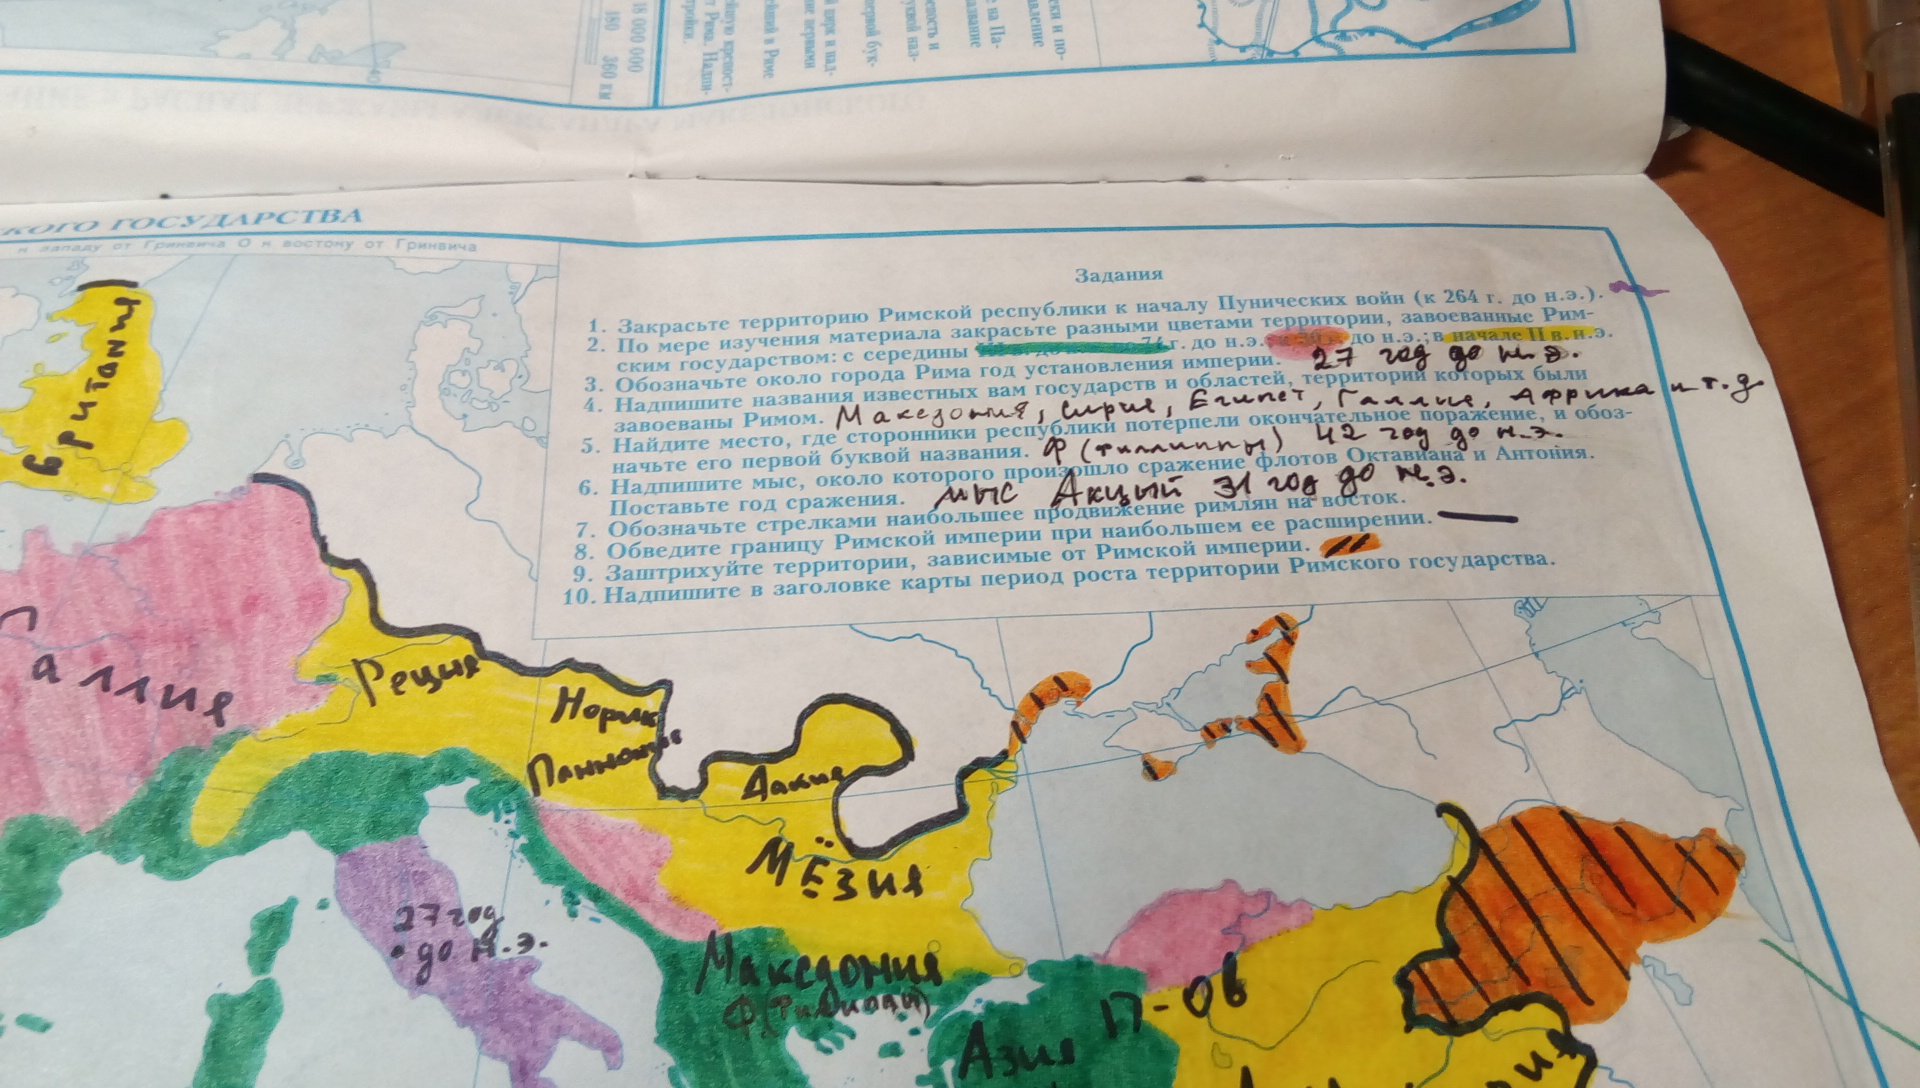 18 000 000
180 360 км
КОГО ГОСУДАРСТВА
к западу от Гринвича 0 к востоку от Гринвича
Задания
1. Закрасьте территорию Римской республики к началу Пунических войн (к 264 г. до н.э.).
2. По мере изучения материала закрасьте разными цветами территории, завоеванные Рим-
ским государством: с середины г. до н.э.; до н.э.; в начале II в. н.э.
3. Обозначьте около города Рима год установления империи. 27 год до н.э.
4. Надпишите названия известных вам государств и областей, территории которых были
завоеваны Римом. Македония, Сирия, Египет, Галлия, Африка и т.д
5. Найдите место, где сторонники республики потерпели окончательное поражение, и обоз-
начьте его первой буквой названия. Ф (Филиппы) 42 год до н.э.
6. Надпишите мыс, около которого произошло сражение флотов Октавиана и Антония.
Поставьте год сражения. мыс Акцый 31 год до н.э.
7. Обозначьте стрелками наибольшее продвижение римлян на восток.
8. Обведите границу Римской империи при наибольшем ее расширении.
9. Заштрихуйте территории, зависимые от Римской империи.
10. Надпишите в заголовке карты период роста территории Римского государства.
Британия
Галлия
Реция
Норик
Паннония
Дакия
МЁЗИЯ
27 год
до н.э.
Македония
Ф (Филиппы)
П-ов
Азия